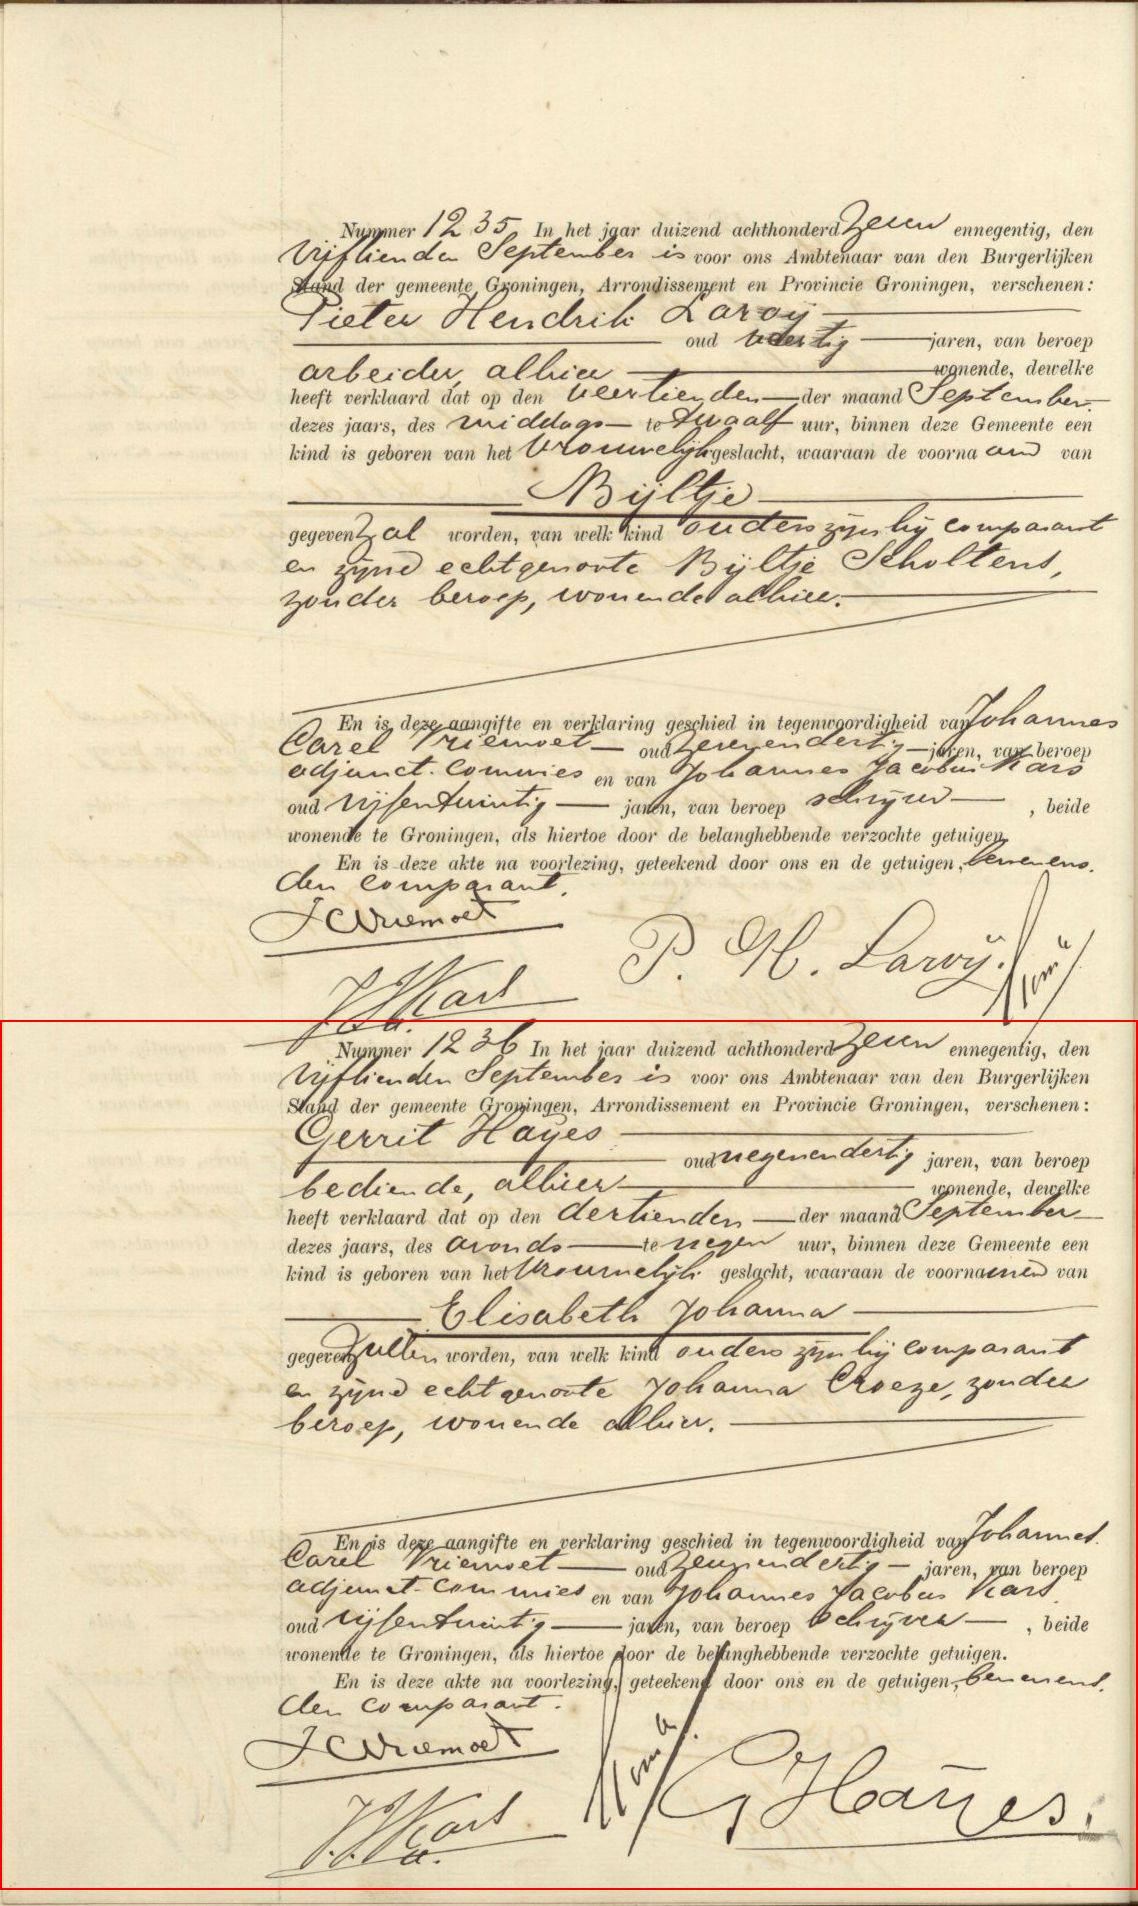 Nummer 1235 In het jaar duizend achthonderd Zeven ennegentig, den
Vijftienden September is voor ons Ambtenaar van den Burgerlijken
Stand der gemeente Groningen, Arrondissement en Provincie Groningen, verschenen:
Pieter Hendrik Laroij
oud veertig jaren, van beroep
arbeider, alhier wonende, dewelke
heeft verklaard dat op den veertienden der maand September
dezes jaars, des middags te twaalf uur, binnen deze Gemeente een
kind is geboren van het Vrouwelijk geslacht, waaraan de voornaam van
Bijltje
gegeven zal worden, van welk kind ouders zijn hij comparant
en zijne echtgenoote Bijltje Scholtens,
zonder beroep, wonende alhier.
En is deze aangifte en verklaring geschied in tegenwoordigheid van Johannes
Carel Vriemoet oud zevenendertig jaren, van beroep
adjunct-commies en van Johannes Jacobus Kars
oud vijfentwintig jaren, van beroep schrijver, beide
wonende te Groningen, als hiertoe door de belanghebbende verzochte getuigen.
En is deze akte na voorlezing, geteekend door ons en de getuigen, benevens
den comparant.
JCVriemoet
P. H. Laroij.
J.J. Kars
Nummer 1236 In het jaar duizend achthonderd Zeven ennegentig, den
Vijftienden September is voor ons Ambtenaar van den Burgerlijken
Stand der gemeente Groningen, Arrondissement en Provincie Groningen, verschenen:
Gerrit Haijes
oud negenendertig jaren, van beroep
bediende, alhier wonende, dewelke
heeft verklaard dat op den dertienden der maand September
dezes jaars, des avonds te negen uur, binnen deze Gemeente een
kind is geboren van het Vrouwelijk geslacht, waaraan de voornamen van
Elisabeth Johanna
gegeven zullen worden, van welk kind ouders zijn hij comparant
en zijne echtgenoote Johanna Croeze, zonder
beroep, wonende alhier.
En is deze aangifte en verklaring geschied in tegenwoordigheid van Johannes
Carel Vriemoet oud zevenendertig jaren, van beroep
adjunct-commies en van Johannes Jacobus Kars
oud vijfentwintig jaren, van beroep schrijver, beide
wonende te Groningen, als hiertoe door de belanghebbende verzochte getuigen.
En is deze akte na voorlezing, geteekend door ons en de getuigen, benevens
den comparant.
JCVriemoet
G Haijes.
J.J. Kars